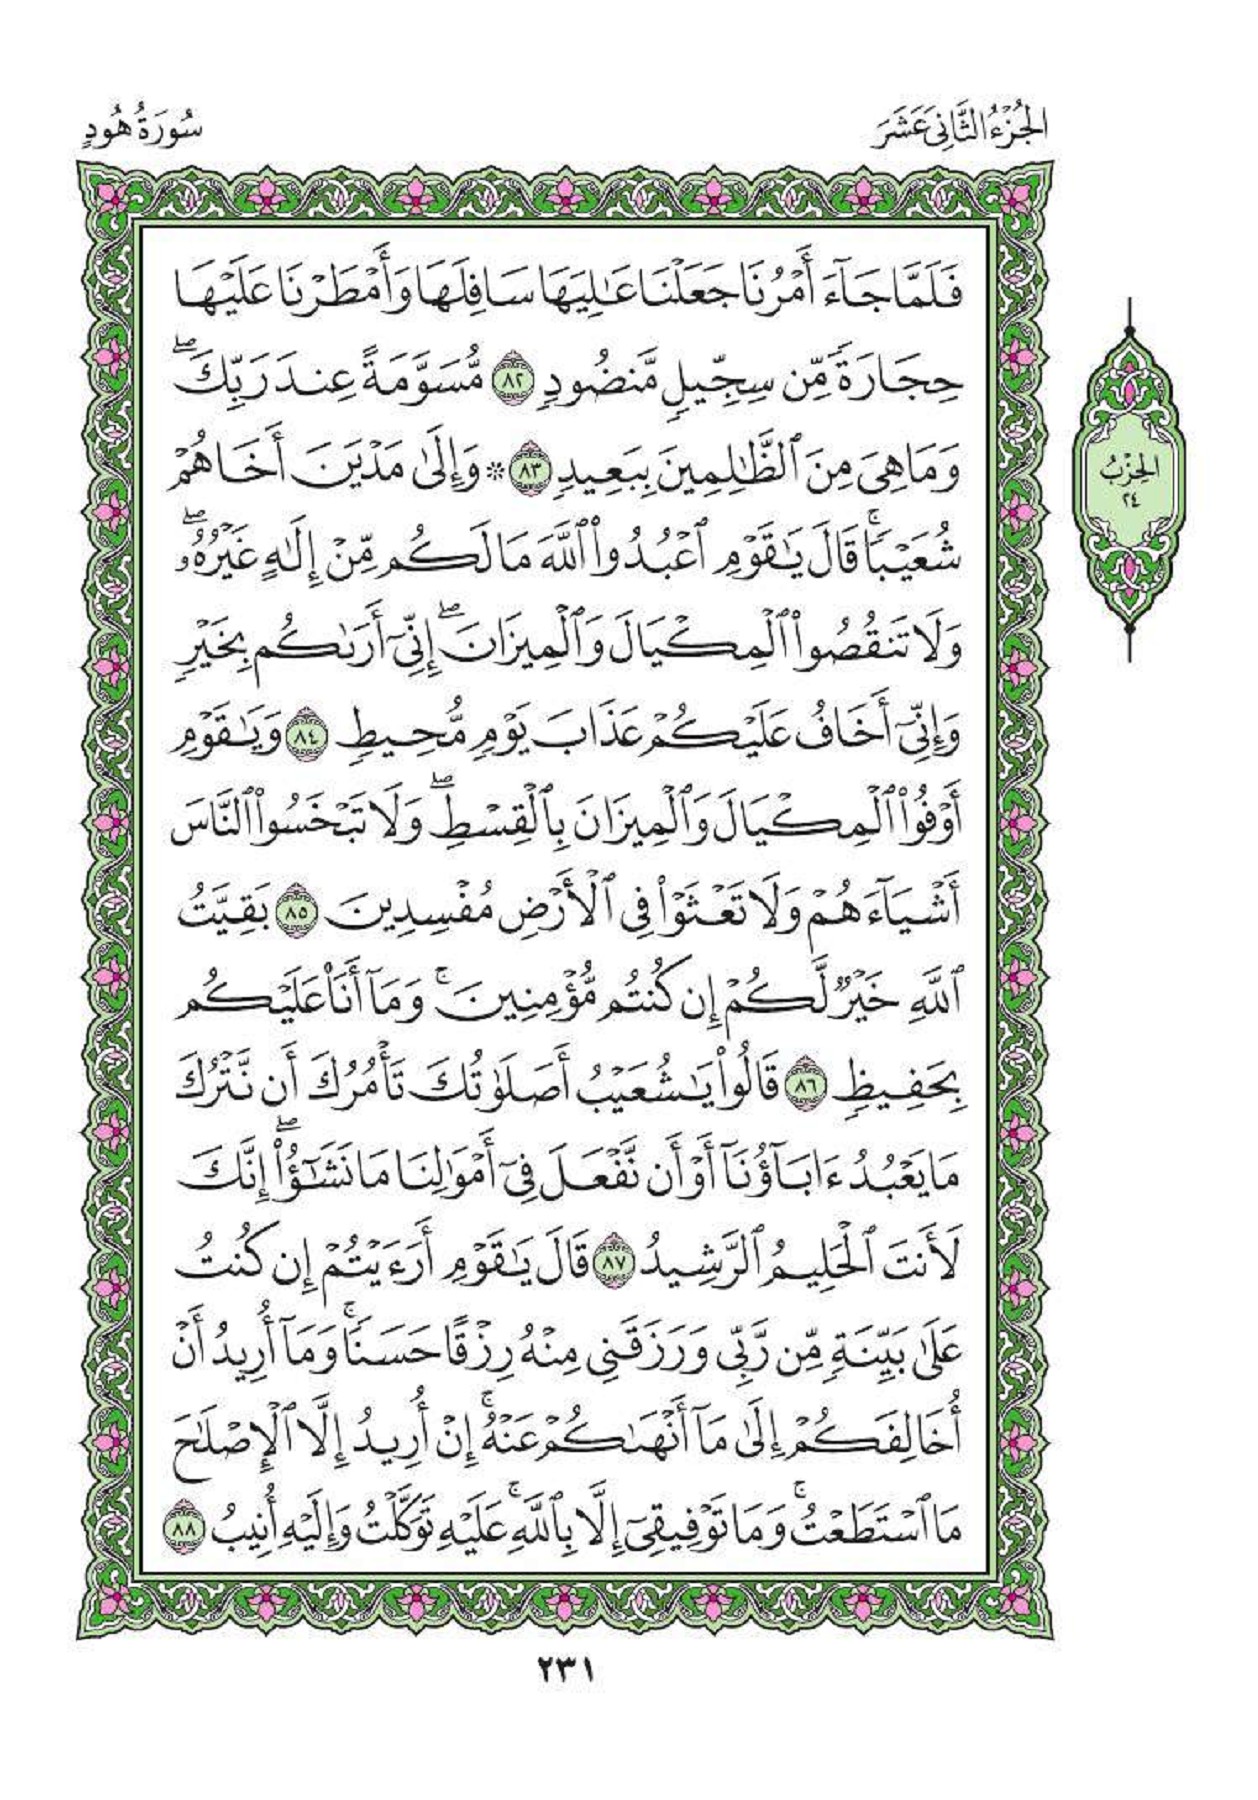 الجُزْءُ الثَّانِي عَشَرَ
سُورَةُ هُودٍ
فَلَمَّا جَآءَ أَمْرُنَا جَعَلْنَا عَٰلِيَهَا سَافِلَهَا وَأَمْطَرْنَا عَلَيْهَا
حِجَارَةً مِّن سِجِّيلٍ مَّنضُودٍ ٨٢ مُّسَوَّمَةً عِندَ رَبِّكَۖ
وَمَا هِيَ مِنَ ٱلظَّٰلِمِينَ بِبَعِيدٍ ٨٣ * وَإِلَىٰ مَدْيَنَ أَخَاهُمْ
شُعَيْبًاۚ قَالَ يَٰقَوْمِ ٱعْبُدُوا۟ ٱللَّهَ مَا لَكُم مِّنْ إِلَٰهٍ غَيْرُهُۥۖ
وَلَا تَنقُصُوا۟ ٱلْمِكْيَالَ وَٱلْمِيزَانَۖ إِنِّيٓ أَرَىٰكُم بِخَيْرٍ
وَإِنِّيٓ أَخَافُ عَلَيْكُمْ عَذَابَ يَوْمٍ مُّحِيطٍ ٨٤ وَيَٰقَوْمِ
أَوْفُوا۟ ٱلْمِكْيَالَ وَٱلْمِيزَانَ بِٱلْقِسْطِۖ وَلَا تَبْخَسُوا۟ ٱلنَّاسَ
أَشْيَآءَهُمْ وَلَا تَعْثَوْا۟ فِي ٱلْأَرْضِ مُفْسِدِينَ ٨٥ بَقِيَّتُ
ٱللَّهِ خَيْرٌ لَّكُمْ إِن كُنتُم مُّؤْمِنِينَۚ وَمَآ أَنَا۠ عَلَيْكُم
بِحَفِيظٍ ٨٦ قَالُوا۟ يَٰشُعَيْبُ أَصَلَوٰتُكَ تَأْمُرُكَ أَن نَّتْرُكَ
مَا يَعْبُدُ ءَابَآؤُنَآ أَوْ أَن نَّفْعَلَ فِيٓ أَمْوَٰلِنَا مَا نَشَٰٓؤُا۟ۖ إِنَّكَ
لَأَنتَ ٱلْحَلِيمُ ٱلرَّشِيدُ ٨٧ قَالَ يَٰقَوْمِ أَرَءَيْتُمْ إِن كُنتُ
عَلَىٰ بَيِّنَةٍ مِّن رَّبِّي وَرَزَقَنِي مِنْهُ رِزْقًا حَسَنًاۚ وَمَآ أُرِيدُ أَنْ
أُخَالِفَكُمْ إِلَىٰ مَآ أَنْهَىٰكُمْ عَنْهُۚ إِنْ أُرِيدُ إِلَّا ٱلْإِصْلَٰحَ
مَا ٱسْتَطَعْتُۚ وَمَا تَوْفِيقِيٓ إِلَّا بِٱللَّهِۚ عَلَيْهِ تَوَكَّلْتُ وَإِلَيْهِ أُنِيبُ ٨٨
الحِزْبُ
٢٤
٢٣١